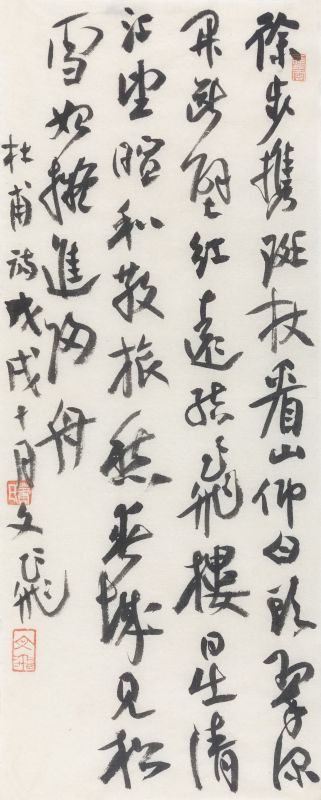 徐步攜斑杖看山仰白头翠深
开断壁红遠结飛樓日出清
江望暄和散旅愁春城見松
雪始擬進归舟
杜甫诗戊戌十月文飛